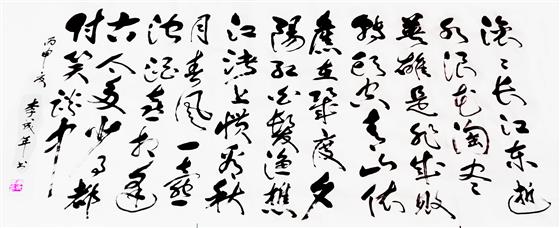 滚〻长江东逝
水浪花淘尽
英雄是非成败
转头空青山依
旧在几度夕
阳红白髮渔樵
江渚上惯看秋
月春风一壶
浊酒喜相逢
古今多少事都
付笑谈中
丙申
李年书